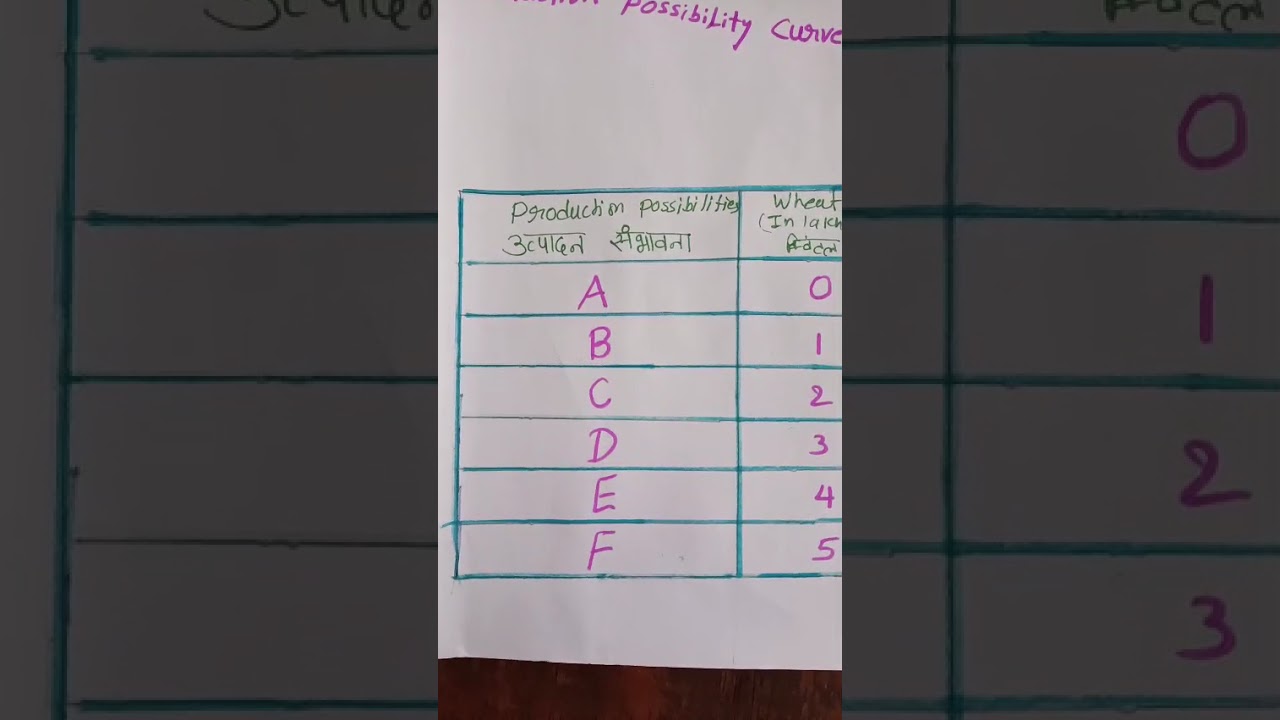 Possibility Curve
Production Possibilities
उत्पादन संभावना
Wheat
(In lakh
क्विंटल
A
0
B
1
C
2
D
3
E
4
F
5
0
1
2
3